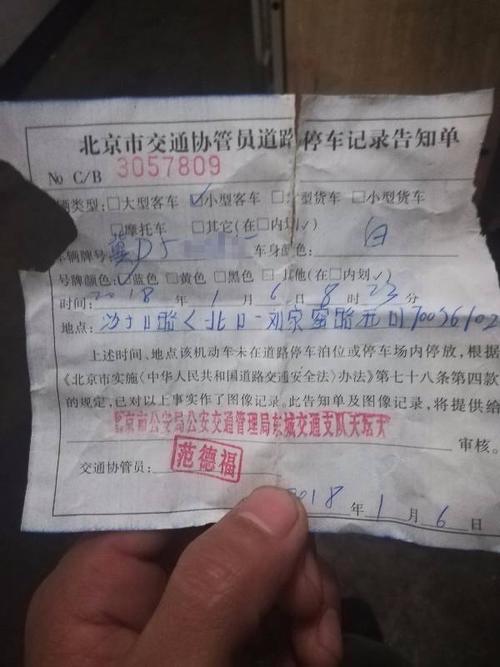 北京市交通协管员道路停车记录告知单
No C/B 3057809
辆类型:□大型客车 ☑小型客车 □型货车 □小型货车
□摩托车 □其它(在□内划√)
车辆牌号:冀D5 车身颜色:白
号牌颜色:☑蓝色 □黄色 □黑色 □其他(在□内划√)
时间:2018年1月6日8时23分
地点:
上述时间、地点该机动车未在道路停车泊位或停车场内停放,根据
《北京市实施〈中华人民共和国道路交通安全法〉办法》第七十八条第四款
的规定,已对以上事实作了图像记录。此告知单及图像记录,将提供给
北京市公安局公安交通管理局东城交通支队天坛大
审核。
交通协管员:范德福
2018年1月6日